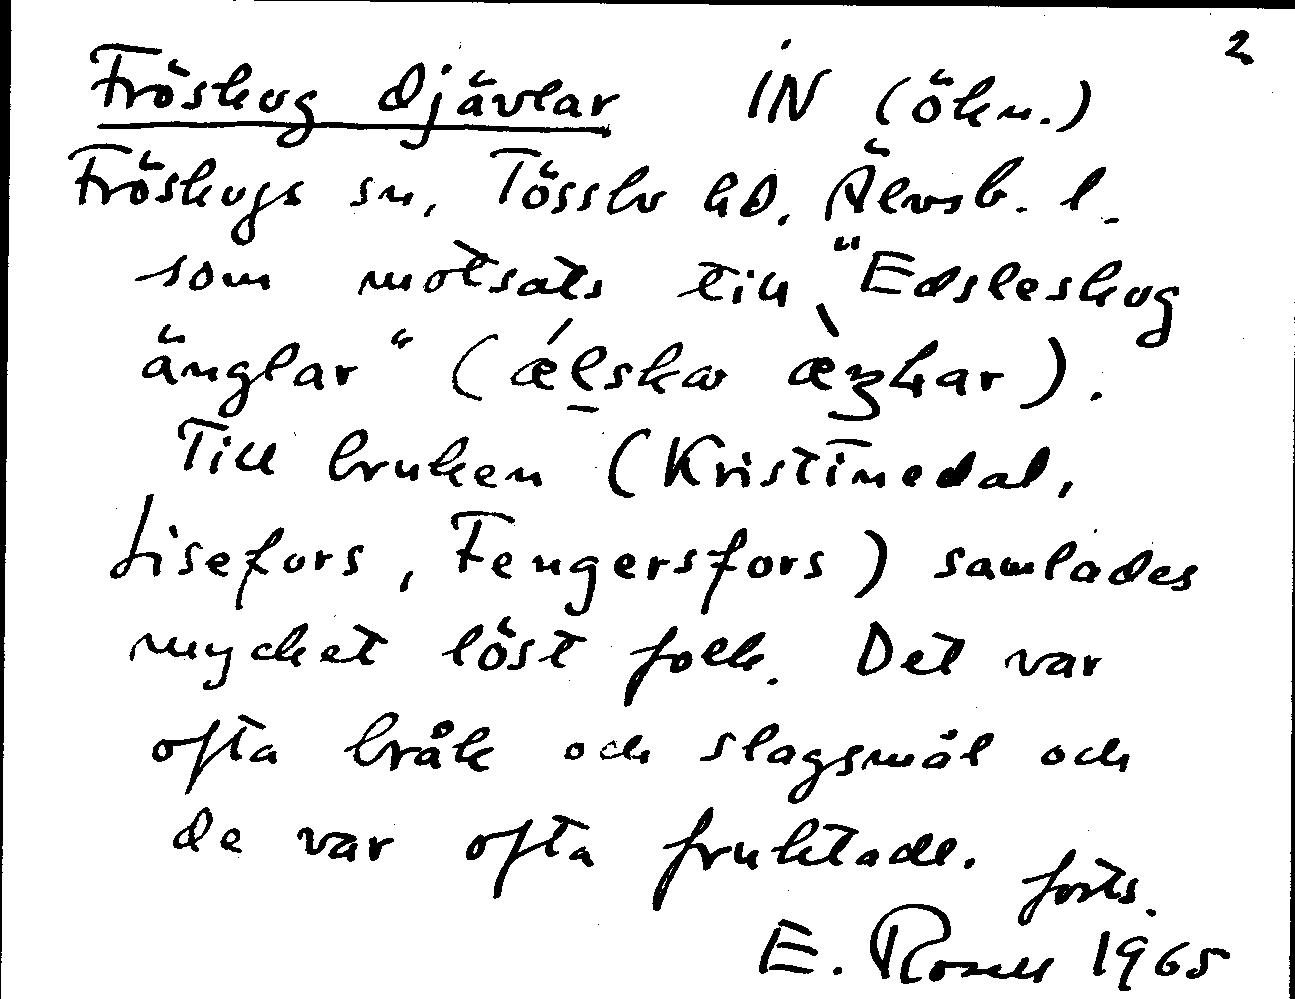 2
Fröskog djävlar IN (ökn.)
Fröskogs sn, Tössbo hd. Älvsb. l.
som motsats till "Edsleskog
änglar" (ǽlska æ̀ŋlar).
Till bruken (Kristinedal,
Lisefors, Fengersfors) samlades
mycket löst folk. Det var
ofta bråk och slagsmål och
de var ofta fruktade.
forts.
E. Rosell 1965